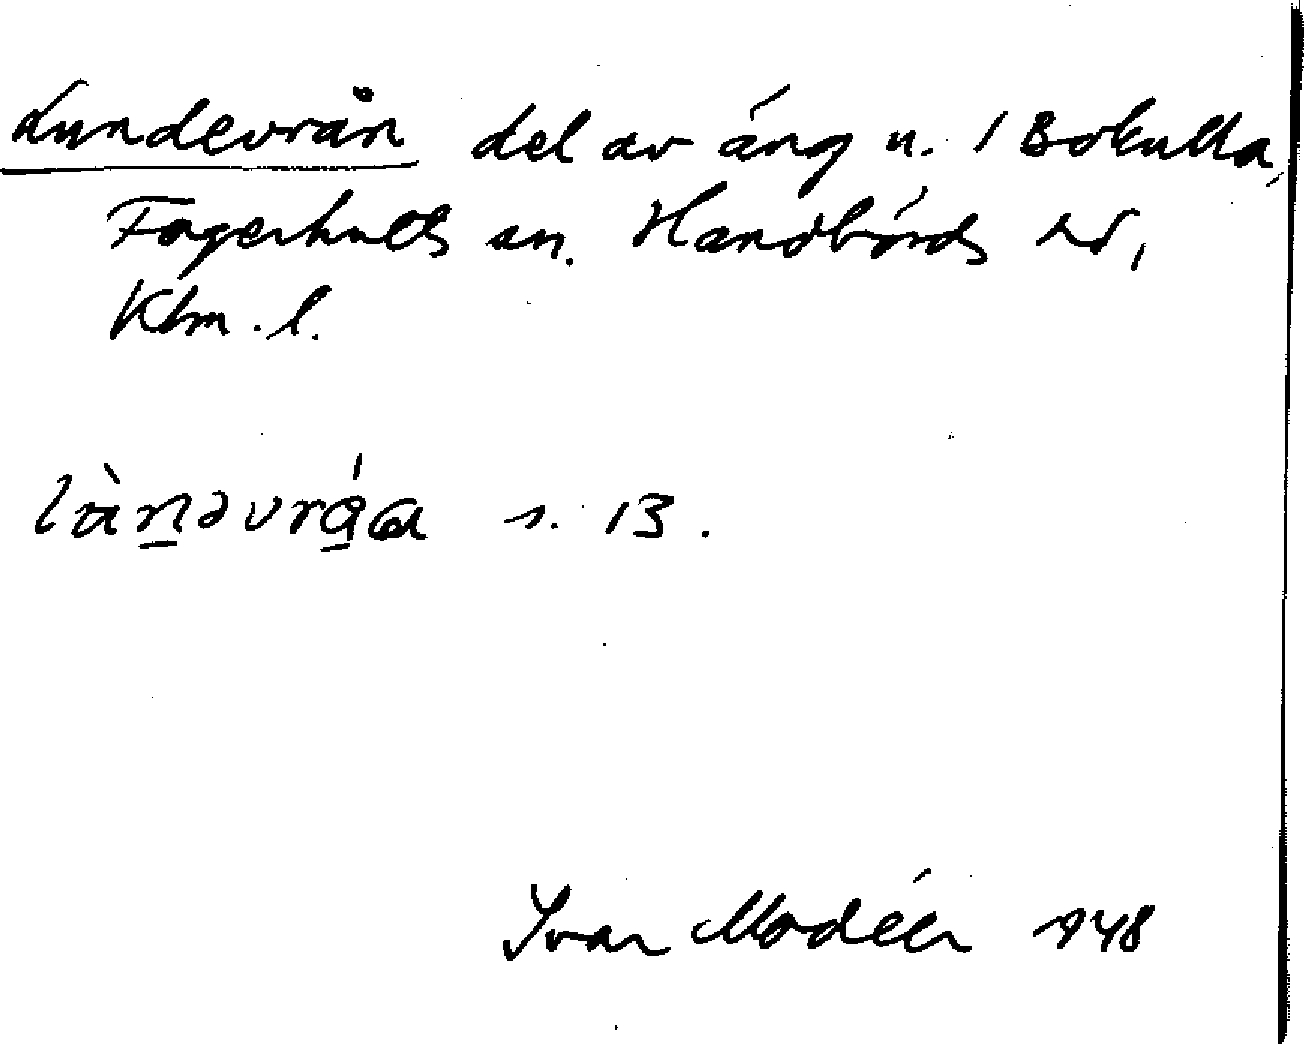 Lundevrån del av äng u. 1 Bökulla,
Fagerhults sn. Handbörds hd,
Klm. l.
s. 13.
Ivar Modéer 1948